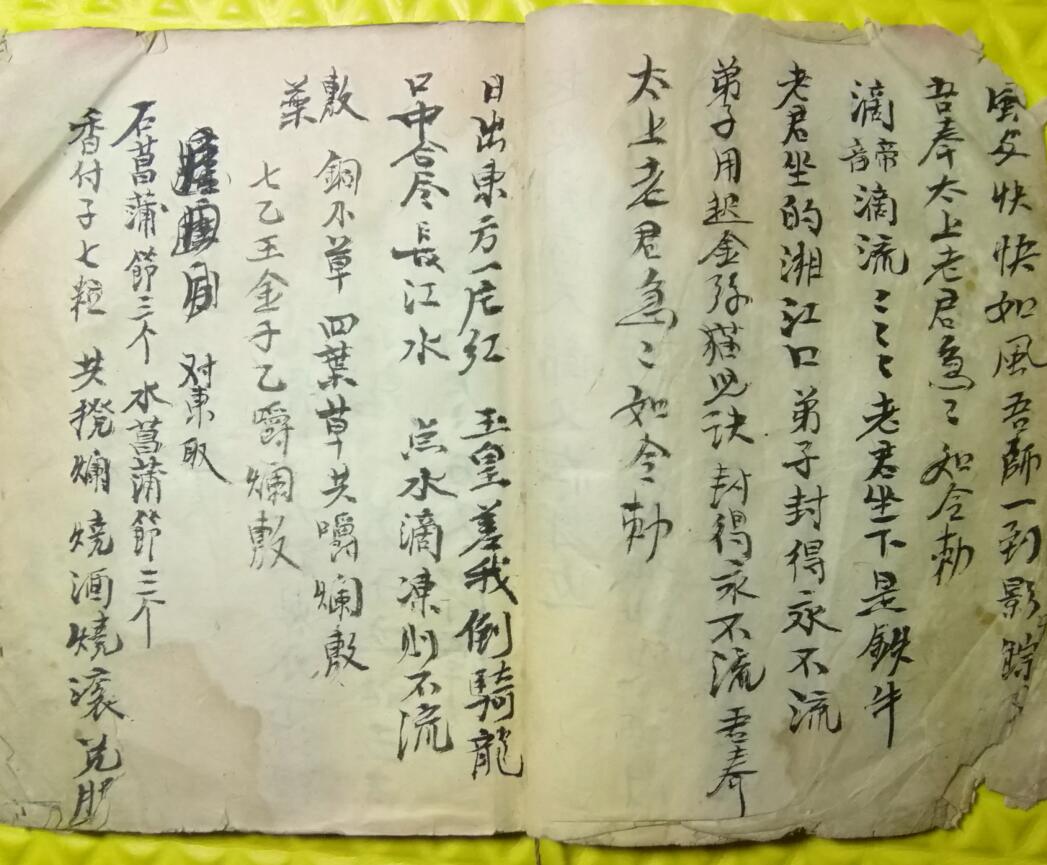 快快如風吾師一到影踪
吾奉太上老君急〻如令勅
滴啼滴流〻〻〻老君坐下是鉄牛
老君坐的湘江口弟子封得永不流
弟子用起金殄猫児訣封得永不流吾奉
太上老君急〻如令勅
日出東方一定红 玉皇差我倒騎龍
口中含尽長江水 点水滴凍則不流
敷 銅不草四葉草共嚼爛敷
葉
七乙王金子乙嚼爛敷
对東取
石菖蒲節三个水菖蒲節三个
香付子七粒 共爛燒酒燒滚